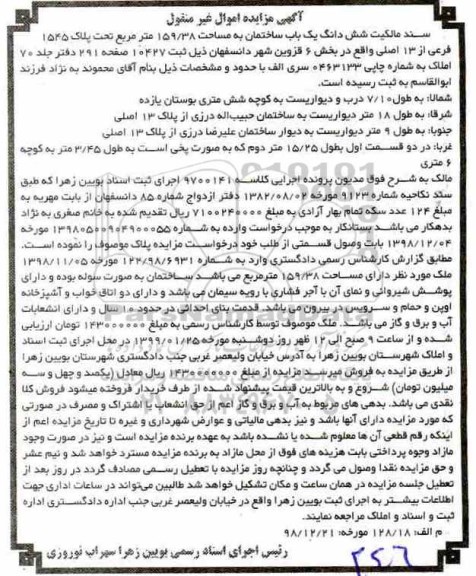 آگهی مزایده اموال غیر منقول
سند مالکیت شش دانگ یک باب ساختمان به مساحت ۱۵۹/۳۸ متر مربع تحت پلاک ۱۵۴۵
فرعی از ۱۳ اصلی واقع در بخش ۶ قزوین شهر دانسفهان ذیل ثبت ۱۰۴۲۷ صفحه ۲۹۱ دفتر جلد ۷۰
املاک به شماره چاپی ۰۴۶۳۱۳۳ سری الف با حدود و مشخصات ذیل بنام آقای محموند به نژاد فرزند
ابوالقاسم به ثبت رسیده است.
شمالا: به طول ۷/۱۰ درب و دیواریست به کوچه شش متری بوستان یازده
شرقا: به طول ۱۸ متر دیواریست به ساختمان حبیب‌اله درزی از پلاک ۱۳ اصلی
جنوبا: به طول ۹ متر دیواریست به دیوار ساختمان علیرضا درزی از پلاک ۱۳ اصلی
غربا: در دو قسمت اول بطول ۱۵/۲۵ متر دوم که به صورت پخی است به طول ۳/۴۵ متر به کوچه
۶ متری
مالک به شرح فوق مدیون پرونده اجرایی کلاسه ۹۷۰۰۱۴۱ اجرای ثبت اسناد بویین زهرا که طبق
سند نکاحیه شماره ۹۱۲۳ مورخه ۱۳۸۲/۰۸/۰۲ دفتر ازدواج شماره ۸۵ دانسفهان از بابت مهریه به
مبلغ ۱۲۴ عدد سکه تمام بهار آزادی به مبلغ ریال تقدیم شده به خانم صغری به نژاد
بدهکار می باشد بستانکار به موجب درخواست وارده به شماره مورخه
۱۳۹۸/۱۲/۰۴ بابت وصول قسمتی از طلب خود درخواست مزایده پلاک موصوف را نموده است.
مطابق گزارش کارشناس رسمی دادگستری وارد به شماره ۱۲۲/۹۸/۶۹۳۱ مورخه ۱۳۹۸/۱۱/۰۵
ملک مورد نظر دارای مساحت ۱۵۹/۳۸ مترمربع می باشد ساختمان به صورت سوله بوده و دارای
پوشش شیروانی و نمای آن با آجر فشاری با رویه سیمان می باشد و دارای دو اتاق خواب و آشپزخانه
اوپن و حمام و سرویس در بیرون می باشد. قدمت بنای احداثی در حدود سال و دارای انشعابات
آب و برق و گاز می باشد. ملک موصوف توسط کارشناس رسمی به مبلغ ۱۴۳۰۰۰۰۰۰۰ تومان ارزیابی
شده و از ساعت ۹ صبح الی ۱۲ ظهر روز دوشنبه مورخه ۱۳۹۹/۰۱/۲۵ در محل اجرای ثبت اسناد
و املاک شهرستان بویین زهرا به آدرس خیابان ولیعصر غربی جنب دادگستری شهرستان بویین زهرا
از طریق مزایده به فروش میرسد مزایده از مبلغ ۱۴۳۰۰۰۰۰۰۰ ریال معادل (یکصد و چهل و سه
میلیون تومان) شروع و به بالاترین قیمت پیشنهاد شده از طرف خریدار فروخته میشود فروش کلا
نقدی می باشد. بدهی های مربوط به آب و برق و گاز اعم از حق انشعاب یا اشتراک و مصرف در صورتی
که مورد مزایده دارای آنها باشد و نیز بدهی مالیاتی و عوارض شهرداری و غیره تا تاریخ مزایده اعم از
اینکه رقم قطعی آن ها معلوم شده یا نشده باشد به عهده برنده مزایده است و نیز در صورت وجود
مازاد وجوه پرداختی بابت هزینه های فوق از محل مازاد به برنده مزایده مسترد خواهد شد و نیم عشر
و حق مزایده نقدا وصول می گردد و چنانچه روز مزایده با تعطیل رسمی مصادف گردد در روز بعد از
تعطیل جلسه مزایده در همان ساعت و مکان تشکیل خواهد شد طالبین می‌تواند در ساعات اداری جهت
اطلاعات بیشتر به اجرای ثبت بویین زهرا واقع در خیابان ولیعصر غربی جنب اداره دادگستری اداره
ثبت و اسناد و املاک مراجعه نمایند.
م الف: ۱۲۸/۱۸ مورخه: ۹۸/۱۲/۲۱
رئیس اجرای اسناد رسمی بویین زهرا سهراب نوروزی